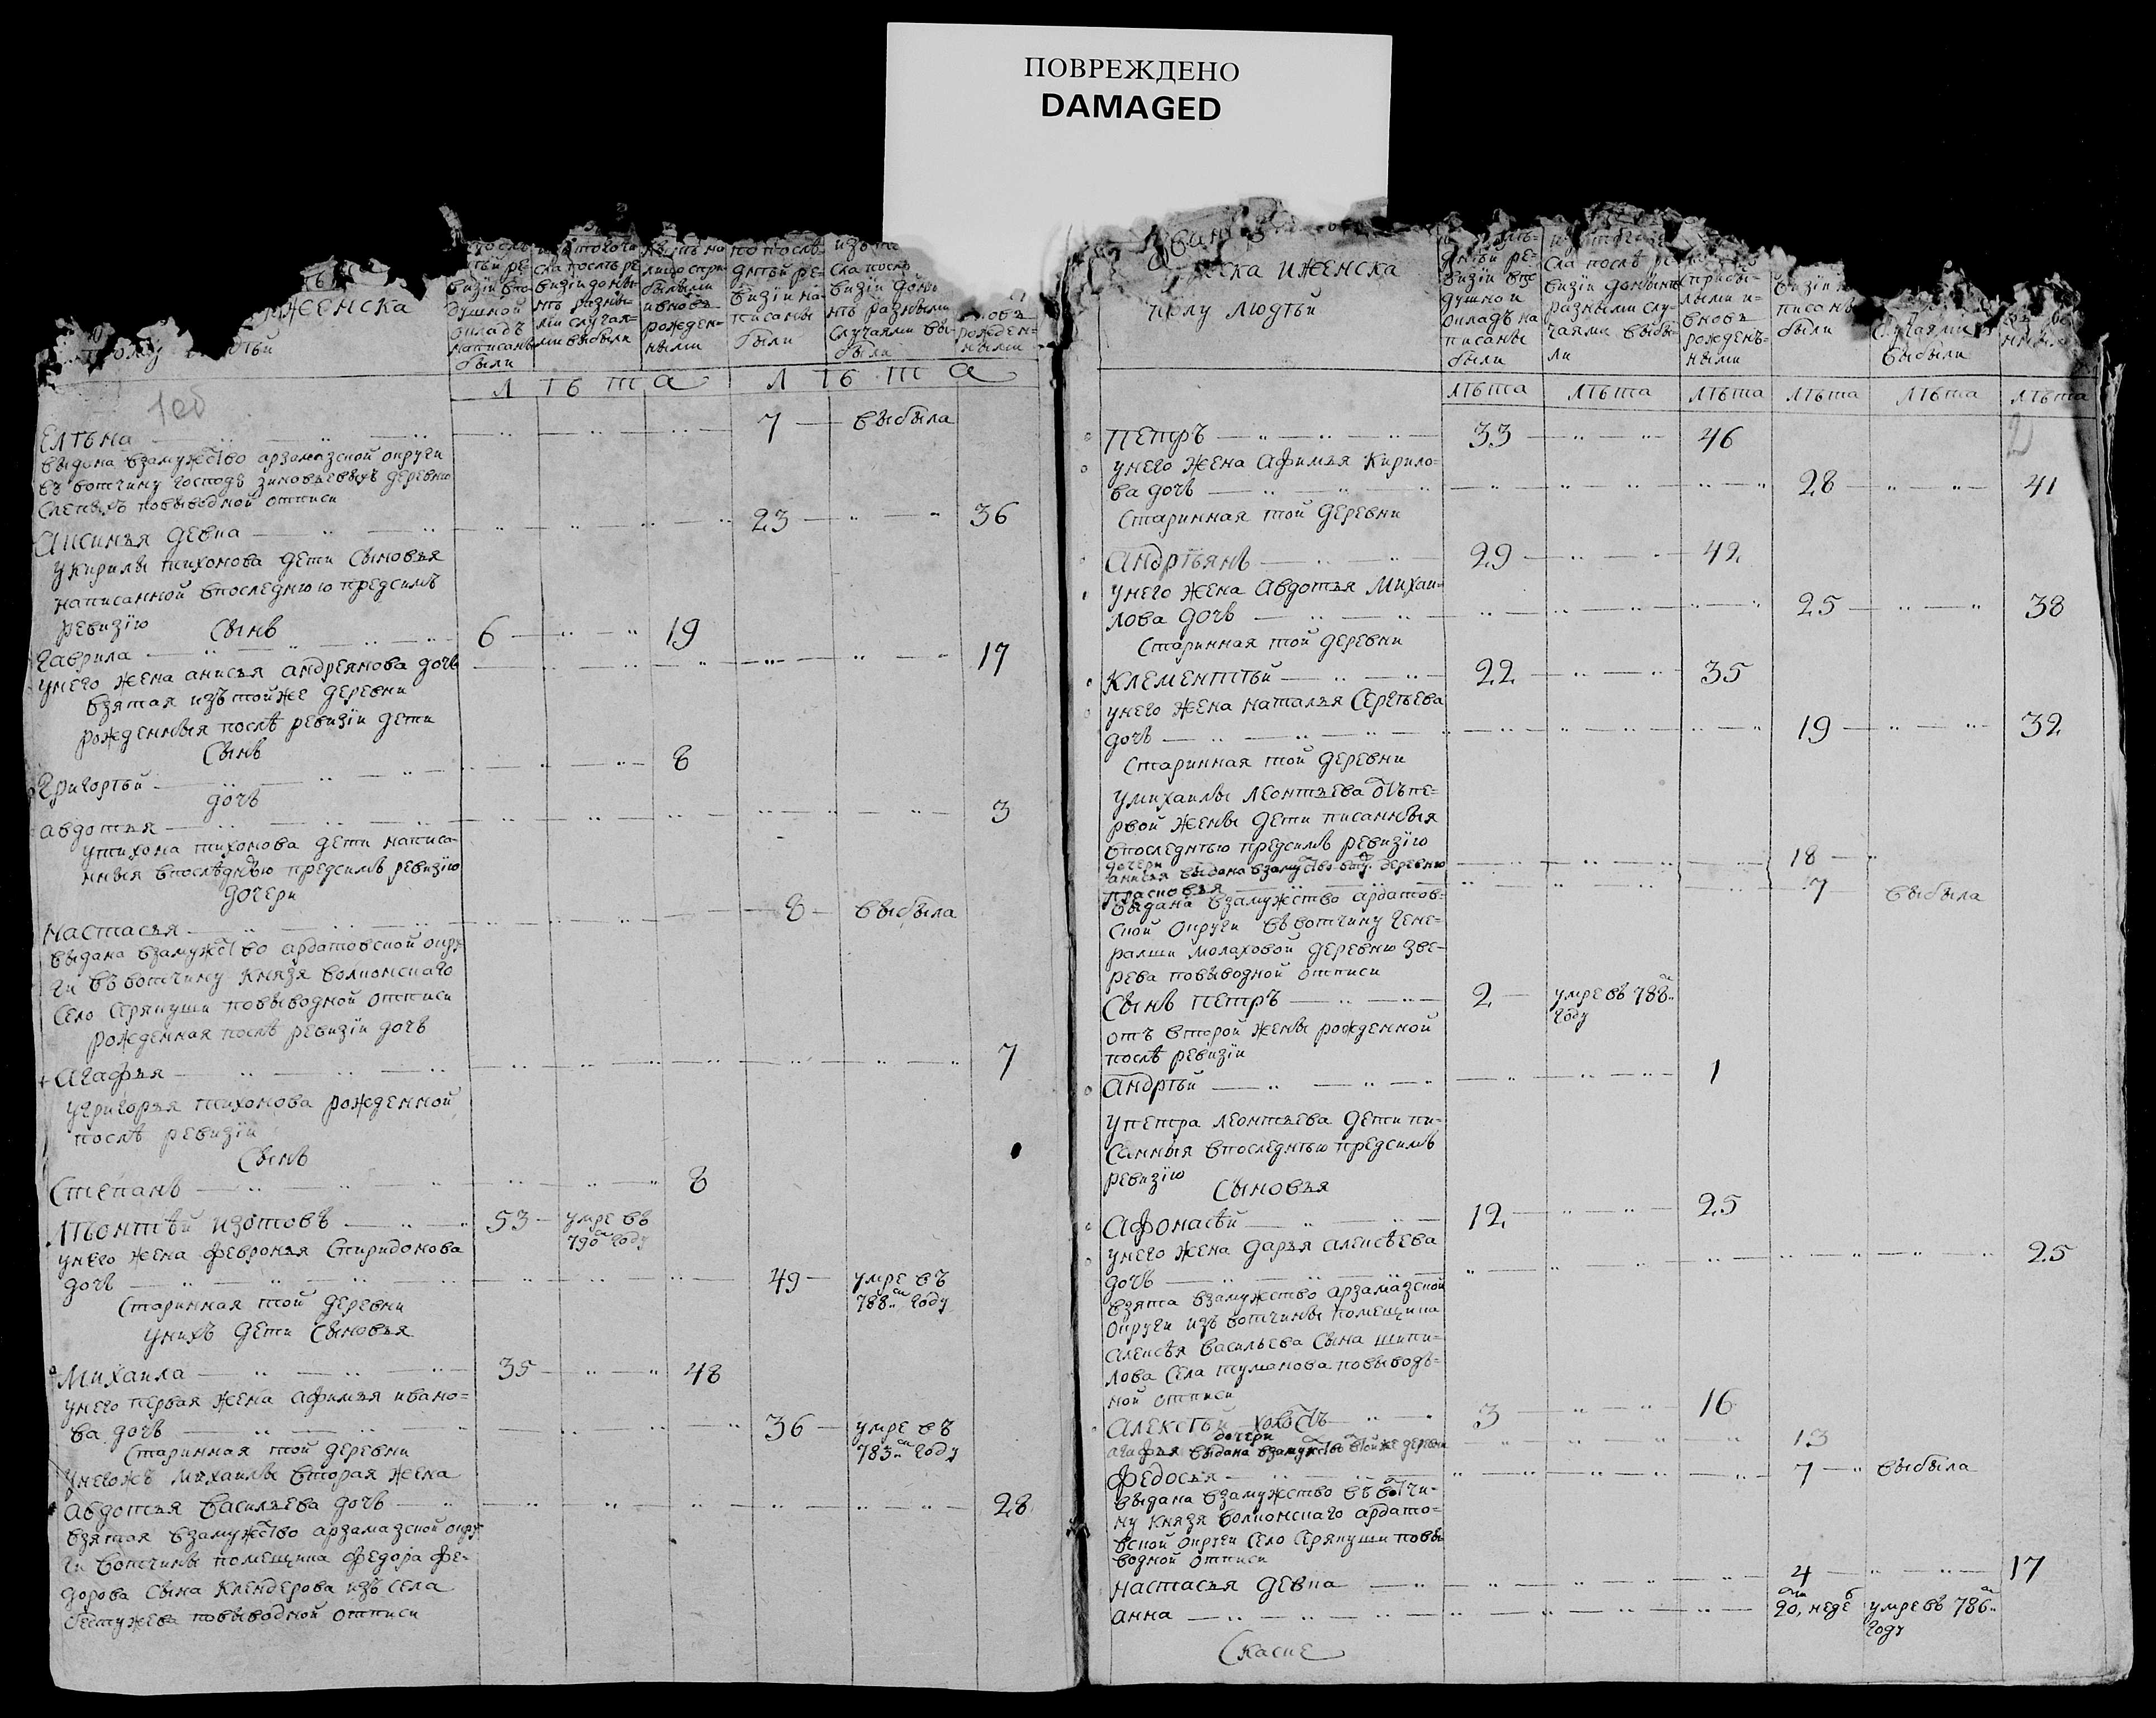 ПОВРЕЖДЕНО
DAMAGED
женска
полу людей
визіи вподушной окладъ написаны были
ска послѣ ревизіи до нынѣ разными случаями выбыли
лицо съ прибылыми и вновь рожденными
по последней ревизіи написаны были
выбыли
рожденными
лѣта лѣта
100
Елѣна 7 выбыла
выдана взамужство арзамазской округи
въ вотчину господъ зиновьевыхъ деревню
повыводной отписи
Аксинья девка 23 36
укирилы тихонова дети сыновья
написанной впоследнюю предсимъ
ревизію
Сынъ
Гаврила 6 19
унего жена анисья андреянова дочь 17
взятая изътойже деревни
рожденныя послѣ ревизіи дети
Сынъ
Григорѣй 8
дочь
авдотья 3
утихона тихонова дети написа-
нныя впослѣднѣю предсимъ ревизію
дочери
Настасья 8 выбыла
выдана взамужство ардатовской окру-
ги въвотчину князя волконскаго
Село Серякуши повыводной отписи
рожденная послѣ ревизіи дочь
Агафья 7
угригорья тихонова рожденной
послѣ ревизіи
Сынъ
Степанъ 8
Лѣонтѣй изотовъ 53 умре въ
790м году
унего жена февронья Спиридонова
дочь 49 умре въ
788м году
Старинная той деревни
унихъ дети Сыновья
Михаила 35 48
унего первая жена афимья ивано=
ва дочь 36 умре въ
783м году
Старинная той деревни
унегожъ михаилы вторая жена
авдотья васильева дочь 28
взятая взамужство арзамазской окру-
ги вотчины помещика федора фе-
дорова сына клендерова изъ села
бестужева повыводной отписи
ска иженска
полу людѣй
дней ревизіи вподушной окладъ написаны были
ска послѣ ревизіи донынѣ разными случаями выбыли
прибылыми и вновь рожденъными
визіи писаны были
случаями выбыли
лѣта лѣта лѣта лѣта лѣта лѣта
2
Петръ 33 46
унего жена афимья кирило=
ва дочь 28 41
Старинная той деревни
Андрѣянъ 29 42
унего жена авдотья михаи=
лова дочь 25 38
Старинная той деревни
Клементѣй 22 35
унего жена наталья Сергѣева
дочь 19 32
Старинная той деревни
умихаилы леонтьева отъпе=
рвой жены дети писанныя
впоследнѣю предсимъ ревизію
дочери
анисья выдана взамуство вту деревню 18
прасковья 7 выбыла
выдана взамужство ардатов-
ской округи въвотчину гене=
ралши молаховой деревню зве-
рева повыводной отписи
Сынъ петръ 2 умре въ 788м
году
отъ второй жены рожденной
послѣ ревизіи
андрѣй 1
упетра леонтьева дети пи-
санныя впоследнѣю предсимъ
ревизію
Сыновья
Афонасѣй 12 25
унего жена дарья алексѣева
дочь 25
взята взамужство арзамазской
округи изъ вотчины помещика
алексѣя васильева сына шипи-
лова села туманова повыводъ=
ной отписи
Алексѣй холостъ 3 16
дочери
агафья выдана взамужство втойже деревни 13
федосья 7 выбыла
выдана взамужство въвотчи-
ну князя волконскаго ардато=
вской округи село Серякуши повы
водной отписи
настасья девка 4 17
анна 20, неде умре въ 786м
году
Скаске